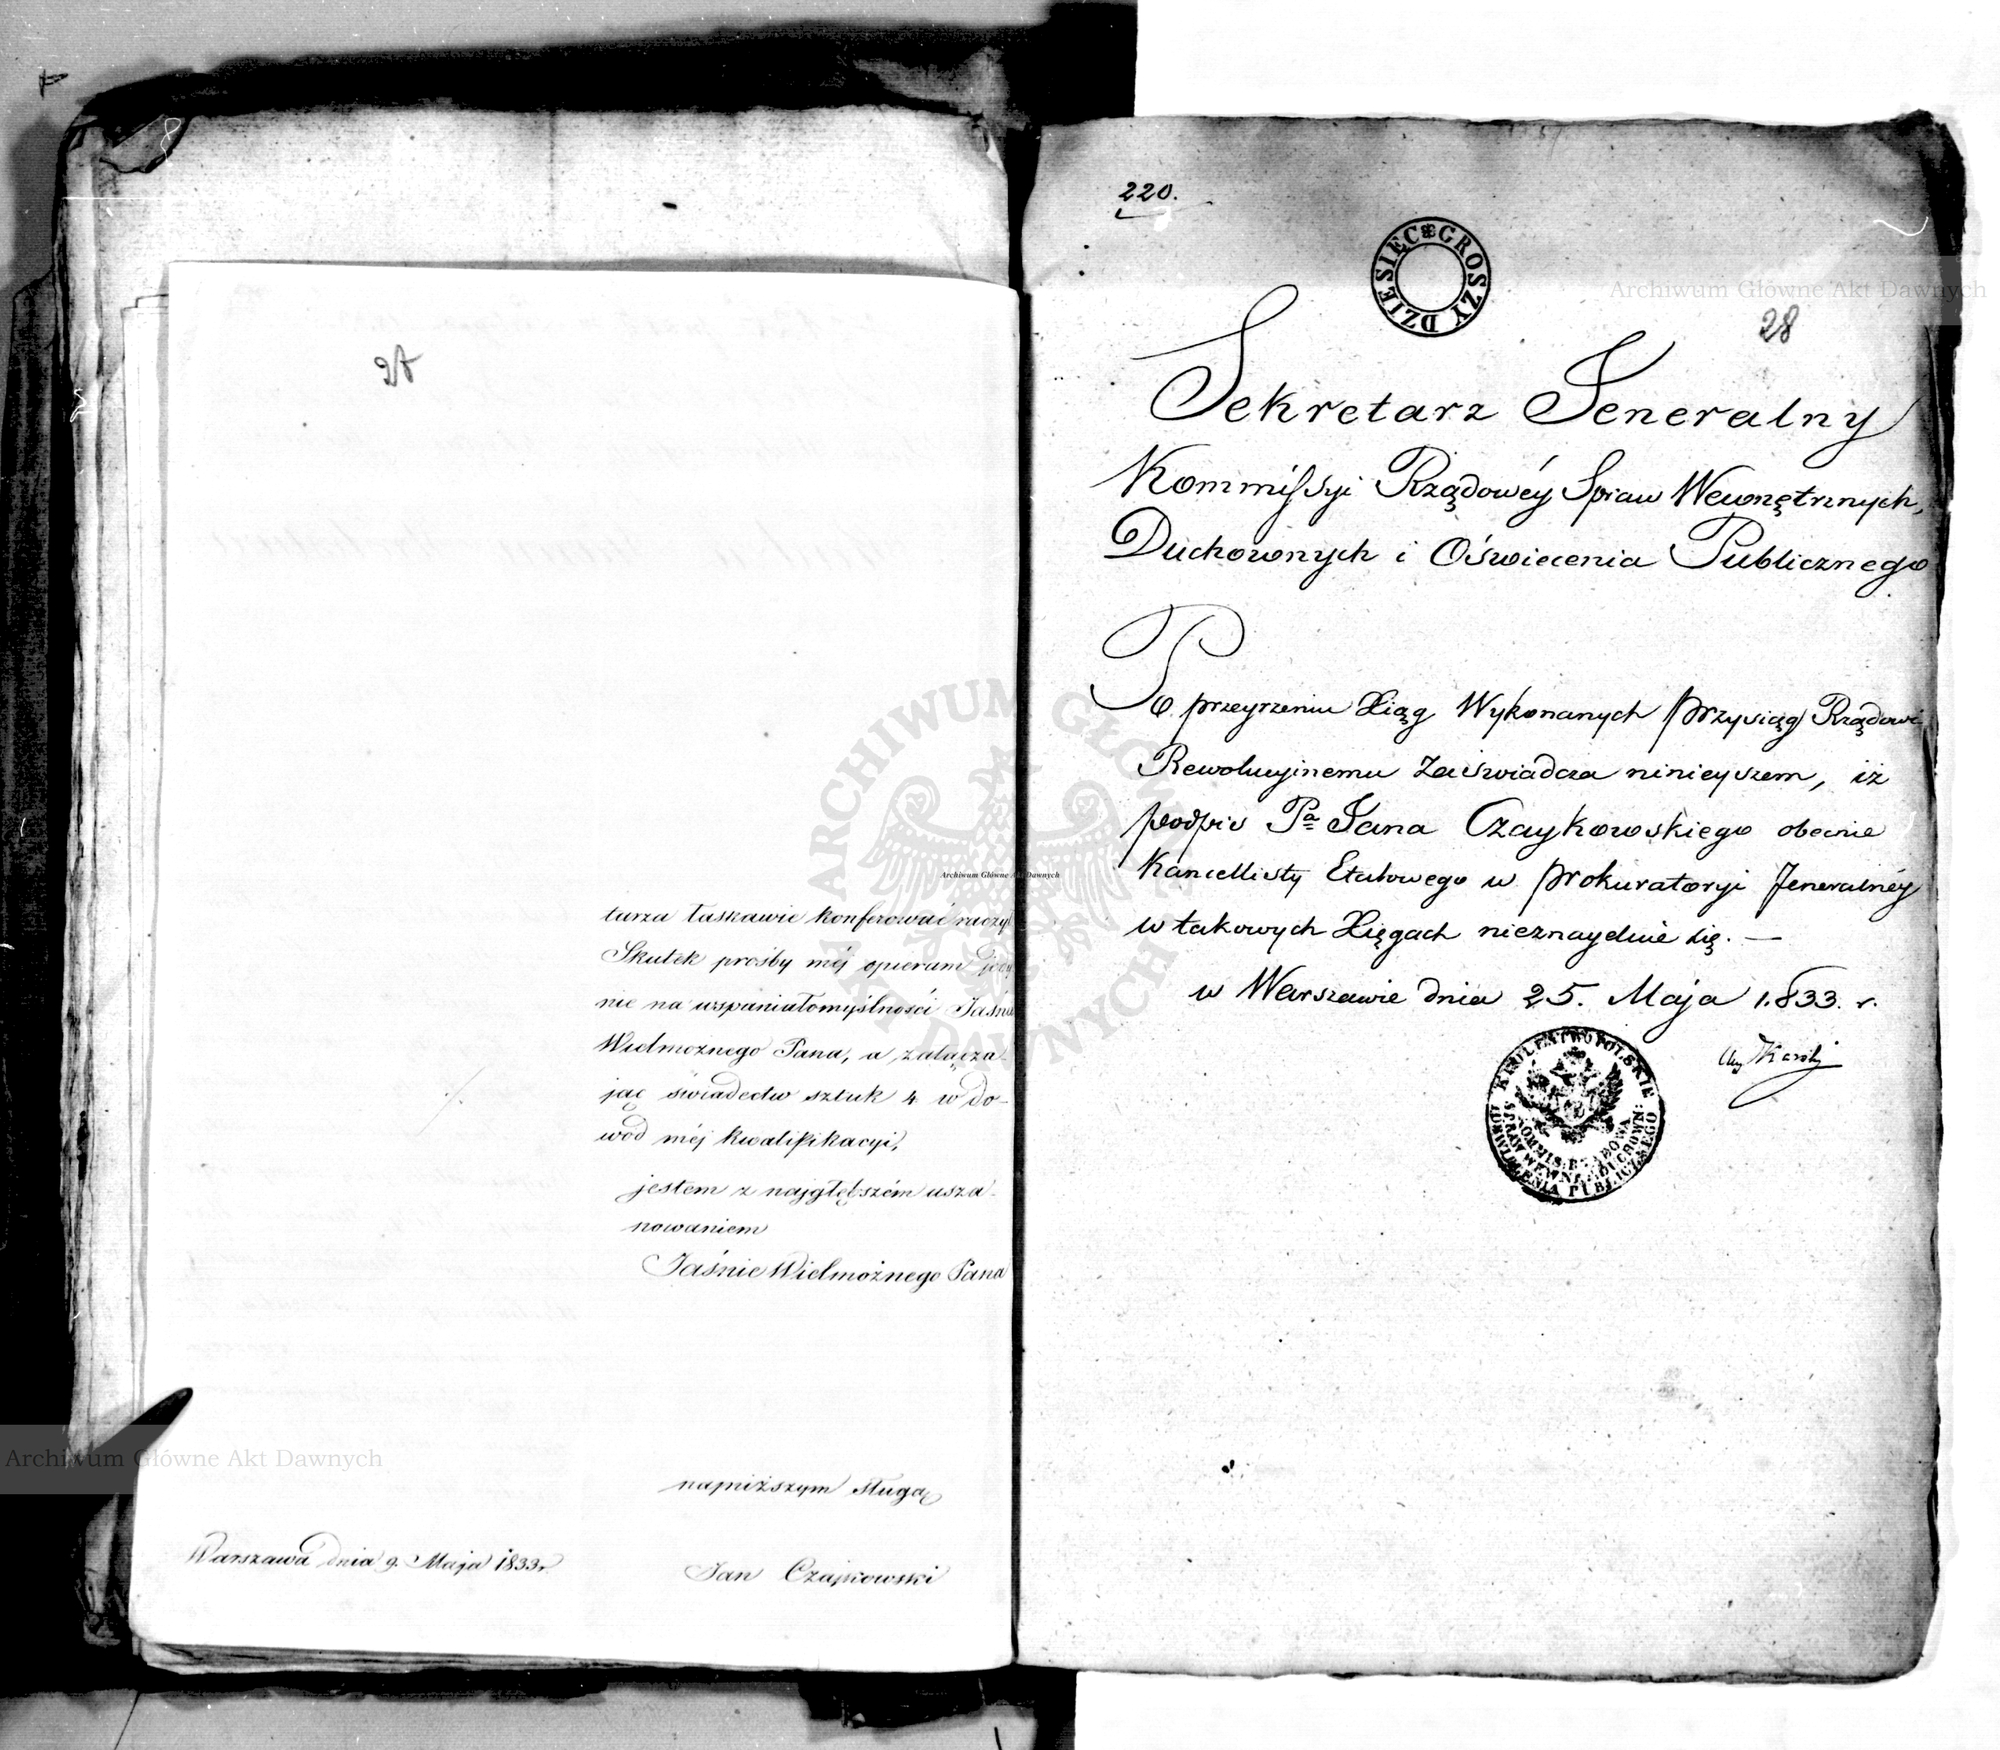 27
turza łaskawie konferować raczył
Skutek prośby mej opieram jedy
nie na wspaniałomyślności Jaśnie
Wielmożnego Pana, a załącza-
jąc świadectw sztuk 4 w do-
wód mej kwalifikacyi,
jestem z najgłębszém usza-
nowaniem
Jaśnie Wielmożnego Pana
najniższym sługą
Warszawa dnia 9. Maja 1833r.
Jan Czajkowski
220.
DZIESIĘC GROSZY
28
Sekretarz Jeneralny
Kommissyi Rządowéy Spraw Wewnętrznych,
Duchownych i Oświecenia Publicznego
Po przeyrzeniu Xiąg Wykonanych przysiąg Rządowi
Rewolucyjnemu Zaświadcza ninieyszem, iż
podpis Pa Jana Czaykowskiego obecnie
Kancellisty Etatowego w Prokuratoryi Jeneralnéy
w takowych Xięgach nieznayduie się. —
w Warszawie dnia 25. Maja 1833. r.
KROLESTWO POLSKIE
KOMMIS: RZĄDOWA
SPRAW WEWN: DUCHOWN:
I OŚWIECENIA PUBLICZNEGO
ARCHIWUM GŁÓWNE AKT DAWNYCH
Archiwum Główne Akt Dawnych
Archiwum Główne Akt Dawnych
Archiwum Główne Akt Dawnych